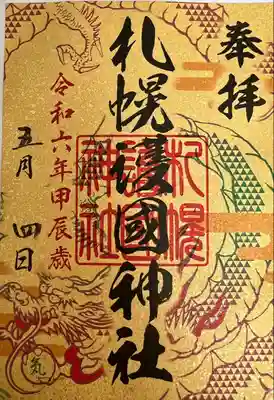 奉拝
札幌護國神社
札幌護國神社
令和六年甲辰歳
五月四日
気